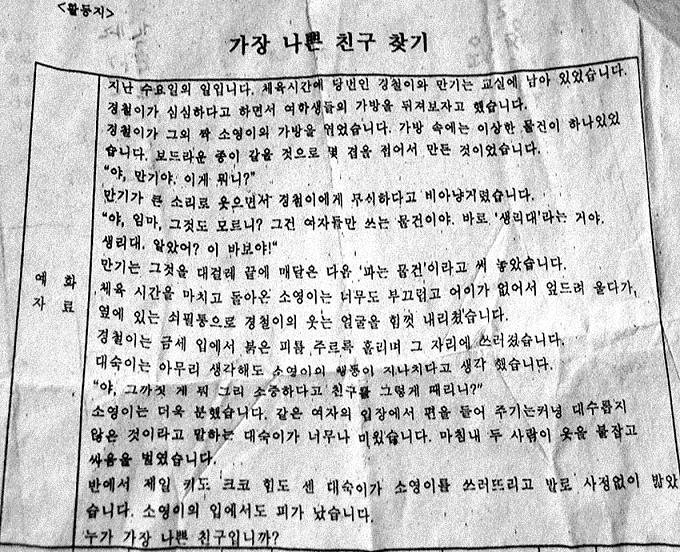 <활동지>
가장 나쁜 친구 찾기
지난 수요일의 일입니다. 체육시간에 당번인 경철이와 만기는 교실에 남아 있었습니다.
경철이가 심심하다고 하면서 여학생들의 가방을 뒤져보자고 했습니다.
경철이가 그의 짝 소영이의 가방을 열었습니다. 가방 속에는 이상한 물건이 하나있었
습니다. 보드라운 종이 같을 것으로 몇 겹을 접어서 만든 것이었습니다.
"야, 만기야. 이게 뭐니?"
만기가 큰 소리로 웃으면서 경철이에게 무식하다고 비아냥거렸습니다.
"야, 임마, 그것도 모르니? 그건 여자들만 쓰는 물건이야. 바로 '생리대'라는 거야.
생리대. 알았어? 이 바보야!"
만기는 그것을 대걸레 끝에 매달은 다음 '파는 물건'이라고 써 놓았습니다.
예 화
자 료
체육 시간을 마치고 돌아온 소영이는 너무도 부끄럽고 어이가 없어서 엎드려 울다가,
옆에 있는 쇠필통으로 경철이의 웃는 얼굴을 힘껏 내리쳤습니다.
경철이는 금세 입에서 붉은 피를 주르륵 흘리며 그 자리에 쓰러졌습니다.
대숙이는 아무리 생각해도 소영이의 행동이 지나치다고 생각 했습니다.
"야, 그까짓 게 뭐 그리 소중하다고 친구를 그렇게 때리니?"
소영이는 더욱 분했습니다. 같은 여자의 입장에서 편을 들어 주기는커녕 대수롭지
않은 것이라고 말하는 대숙이가 너무나 미웠습니다. 마침내 두 사람이 옷을 붙잡고
싸움을 벌였습니다.
반에서 제일 키도 크코 힘도 센 대숙이가 소영이를 쓰러뜨리고 발로 사정없이 밟았
습니다. 소영이의 입에서도 피가 났습니다.
누가 가장 나쁜 친구입니까?